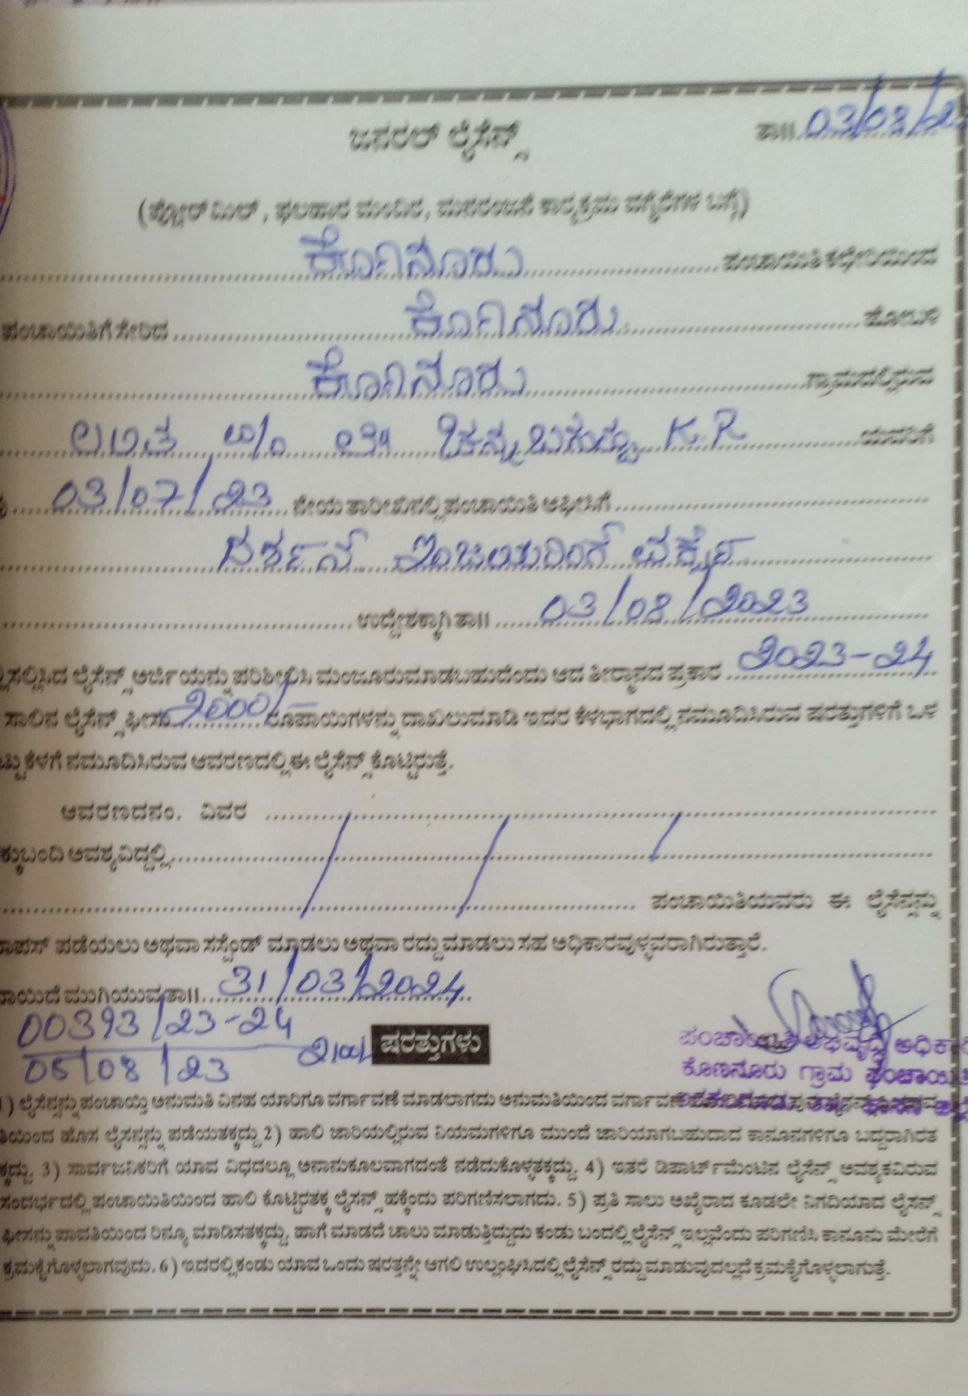 ಜನರಲ್ ಲೈಸೆನ್ಸ್ ತಾ॥ 03/08/2
(ಪ್ಲೋರ್ ಮಿಲ್, ಫಲಹಾರ ಮಂದಿರ, ಮನರಂಜನೆ ಕಾರ್ಯಕ್ರಮ ವಗೈರೆಗಳ ಬಗ್ಗೆ)
ಕೊಣನೂರು ಪಂಚಾಯಿತಿ ಕಛೇರಿಯಿಂದ
ಪಂಚಾಯಿತಿಗೆ ಸೇರಿದ ಕೊಣನೂರು ಹೋಬಳಿ
ಕೊಣನೂರು ಗ್ರಾಮದಲ್ಲಿರುವ
ಲಲಿತ K.R ಯವರಿಗೆ
03/07/23 ನೇಯ ತಾರೀಖಿನಲ್ಲಿ ಪಂಚಾಯಿತಿ ಆಫೀಸಿಗೆ
ದರ್ಶನ್ ಇಂಜಿಯರಿಂಗ್ ವರ್ಕ್ಸ್
ಉದ್ದೇಶಕ್ಕಾಗಿ ತಾ॥ 03/08/2023
ಸಲ್ಲಿಸಿದ ಲೈಸೆನ್ಸ್ ಅರ್ಜಿಯನ್ನು ಪರಿಶೀಲಿಸಿ ಮಂಜೂರುಮಾಡಬಹುದೆಂದು ಆದ ತೀರ್ಮಾನದ ಪ್ರಕಾರ 2023-24
ಸಾಲಿನ ಲೈಸೆನ್ಸ್ ಫೀಸು 2000/- ರೂಪಾಯಿಗಳನ್ನು ದಾಖಲುಮಾಡಿ ಇದರ ಕೆಳಭಾಗದಲ್ಲಿ ನಮೂದಿಸಿರುವ ಷರತ್ತುಗಳಿಗೆ ಒಳ
ಪಟ್ಟು ಕೆಳಗೆ ನಮೂದಿಸಿರುವ ಆವರಣದಲ್ಲಿ ಈ ಲೈಸೆನ್ಸ್ ಕೊಟ್ಟಿರುತ್ತೆ.
ಆವರಣದ ನಂ. ವಿವರ
ಕ್ಕುಬಂದಿ ಅವಶ್ಯವಿದ್ದಲ್ಲಿ
ಪಂಚಾಯಿತಿಯವರು ಈ ಲೈಸೆನ್ಸನ್ನು
ವಾಪಸ್ ಪಡೆಯಲು ಅಥವಾ ಸಸ್ಪೆಂಡ್ ಮಾಡಲು ಅಥವಾ ರದ್ದು ಮಾಡಲು ಸಹ ಅಧಿಕಾರವುಳ್ಳವರಾಗಿರುತ್ತಾರೆ.
ವಾಯಿದೆ ಮುಗಿಯುವ ತಾ॥ 31/03/2024
00393/23-24
05/08/23
ಷರತ್ತುಗಳು
ಪಂಚಾಯಿತಿ ಅಭಿವೃದ್ಧಿ ಅಧಿಕಾರಿ
ಕೊಣನೂರು ಗ್ರಾಮ ಪಂಚಾಯಿ
1) ಲೈಸೆನ್ಸನ್ನು ಪಂಚಾಯ್ತಿ ಅನುಮತಿ ವಿನಹ ಯಾರಿಗೂ ವರ್ಗಾವಣೆ ಮಾಡಲಾಗದು ಅನುಮತಿಯಿಂದ
ತಿಯಿಂದ ಹೊಸ ಲೈಸೆನ್ಸನ್ನು ಪಡೆಯತಕ್ಕದ್ದು 2) ಹಾಲಿ ಜಾರಿಯಲ್ಲಿರುವ ನಿಯಮಗಳಿಗೂ ಮುಂದೆ ಜಾರಿಯಾಗಬಹುದಾದ ಕಾನೂನಗಳಿಗೂ ಬದ್ಧರಾಗಿರತ
ಕ್ಕದ್ದು. 3) ಸಾರ್ವಜನಿಕರಿಗೆ ಯಾವ ವಿಧದಲ್ಲೂ ಅನಾನುಕೂಲವಾಗದಂತೆ ನಡೆದುಕೊಳ್ಳತಕ್ಕದ್ದು. 4) ಇತರೆ ಡಿಪಾರ್ಟ್‌ಮೆಂಟಿನ ಲೈಸೆನ್ಸ್ ಅವಶ್ಯಕವಿರುವ
ಸಂದರ್ಭದಲ್ಲಿ ಪಂಚಾಯಿತಿಯಿಂದ ಹಾಲಿ ಕೊಟ್ಟಿರತಕ್ಕ ಲೈಸೆನ್ಸ್ ಹಕ್ಕೆಂದು ಪರಿಗಣಿಸಲಾಗದು. 5) ಪ್ರತಿ ಸಾಲು ಅಖೈರಾದ ಕೂಡಲೇ ನಿಗದಿಯಾದ ಲೈಸೆನ್ಸ್
ಫೀಸನ್ನು ಪಾವತಿಯಿಂದ ರಿನ್ಯೂ ಮಾಡಿಸತಕ್ಕದ್ದು. ಹಾಗೆ ಮಾಡದೆ ಚಾಲು ಮಾಡುತ್ತಿದ್ದುದು ಕಂಡು ಬಂದಲ್ಲಿ ಲೈಸೆನ್ಸ್ ಇಲ್ಲವೆಂದು ಪರಿಗಣಿಸಿ ಕಾನೂನು ಮೇರೆಗೆ
ಕ್ರಮಕೈಗೊಳ್ಳಲಾಗುವದು. 6) ಇದರಲ್ಲಿ ಕಂಡು ಯಾವ ಒಂದು ಷರತ್ತನ್ನೇ ಆಗಲಿ ಉಲ್ಲಂಘಿಸಿದಲ್ಲಿ ಲೈಸೆನ್ಸ್ ರದ್ದು ಮಾಡುವುದಲ್ಲದೆ ಕ್ರಮಕೈಗೊಳ್ಳಲಾಗುತ್ತೆ.